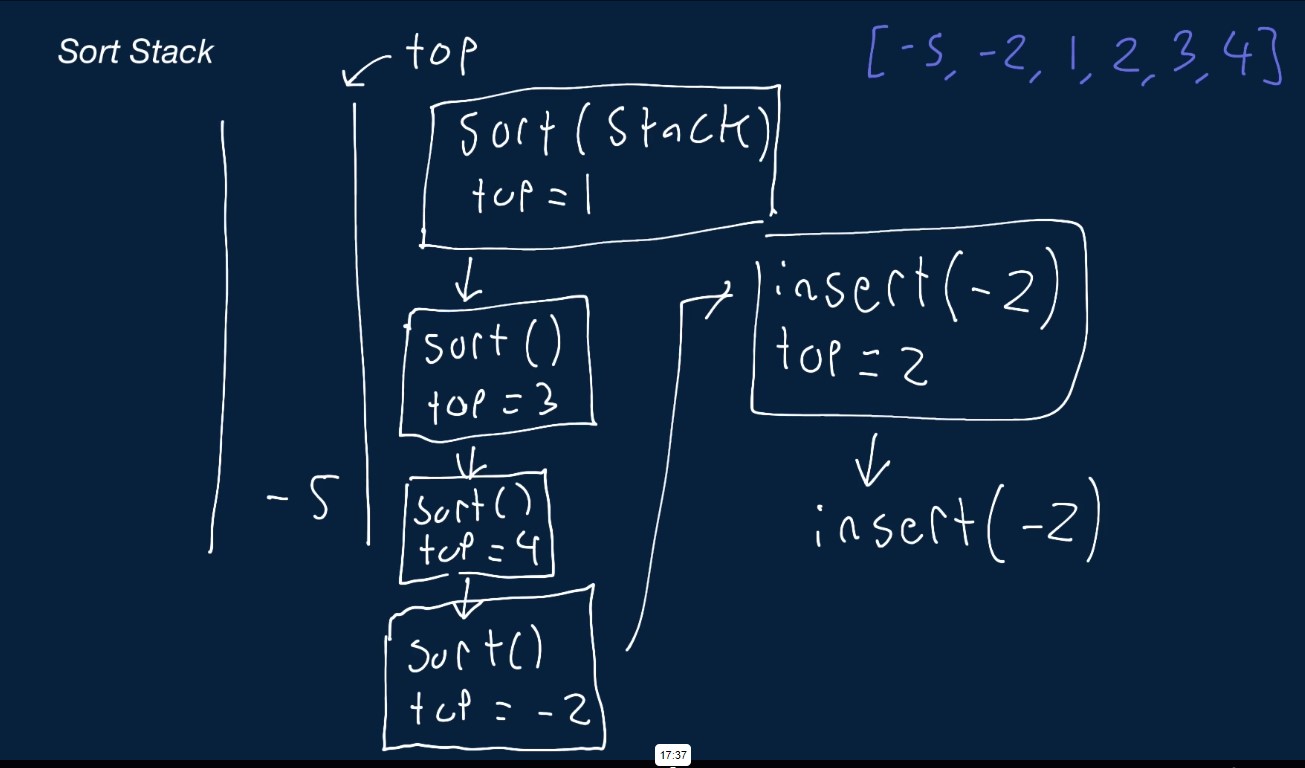 Sort Stack
top
[-5, -2, 1, 2, 3, 4]
sort(stack)
top = 1
sort()
top = 3
sort()
top = 4
sort()
top = -2
insert(-2)
top = 2
insert(-2)
-5
17:37